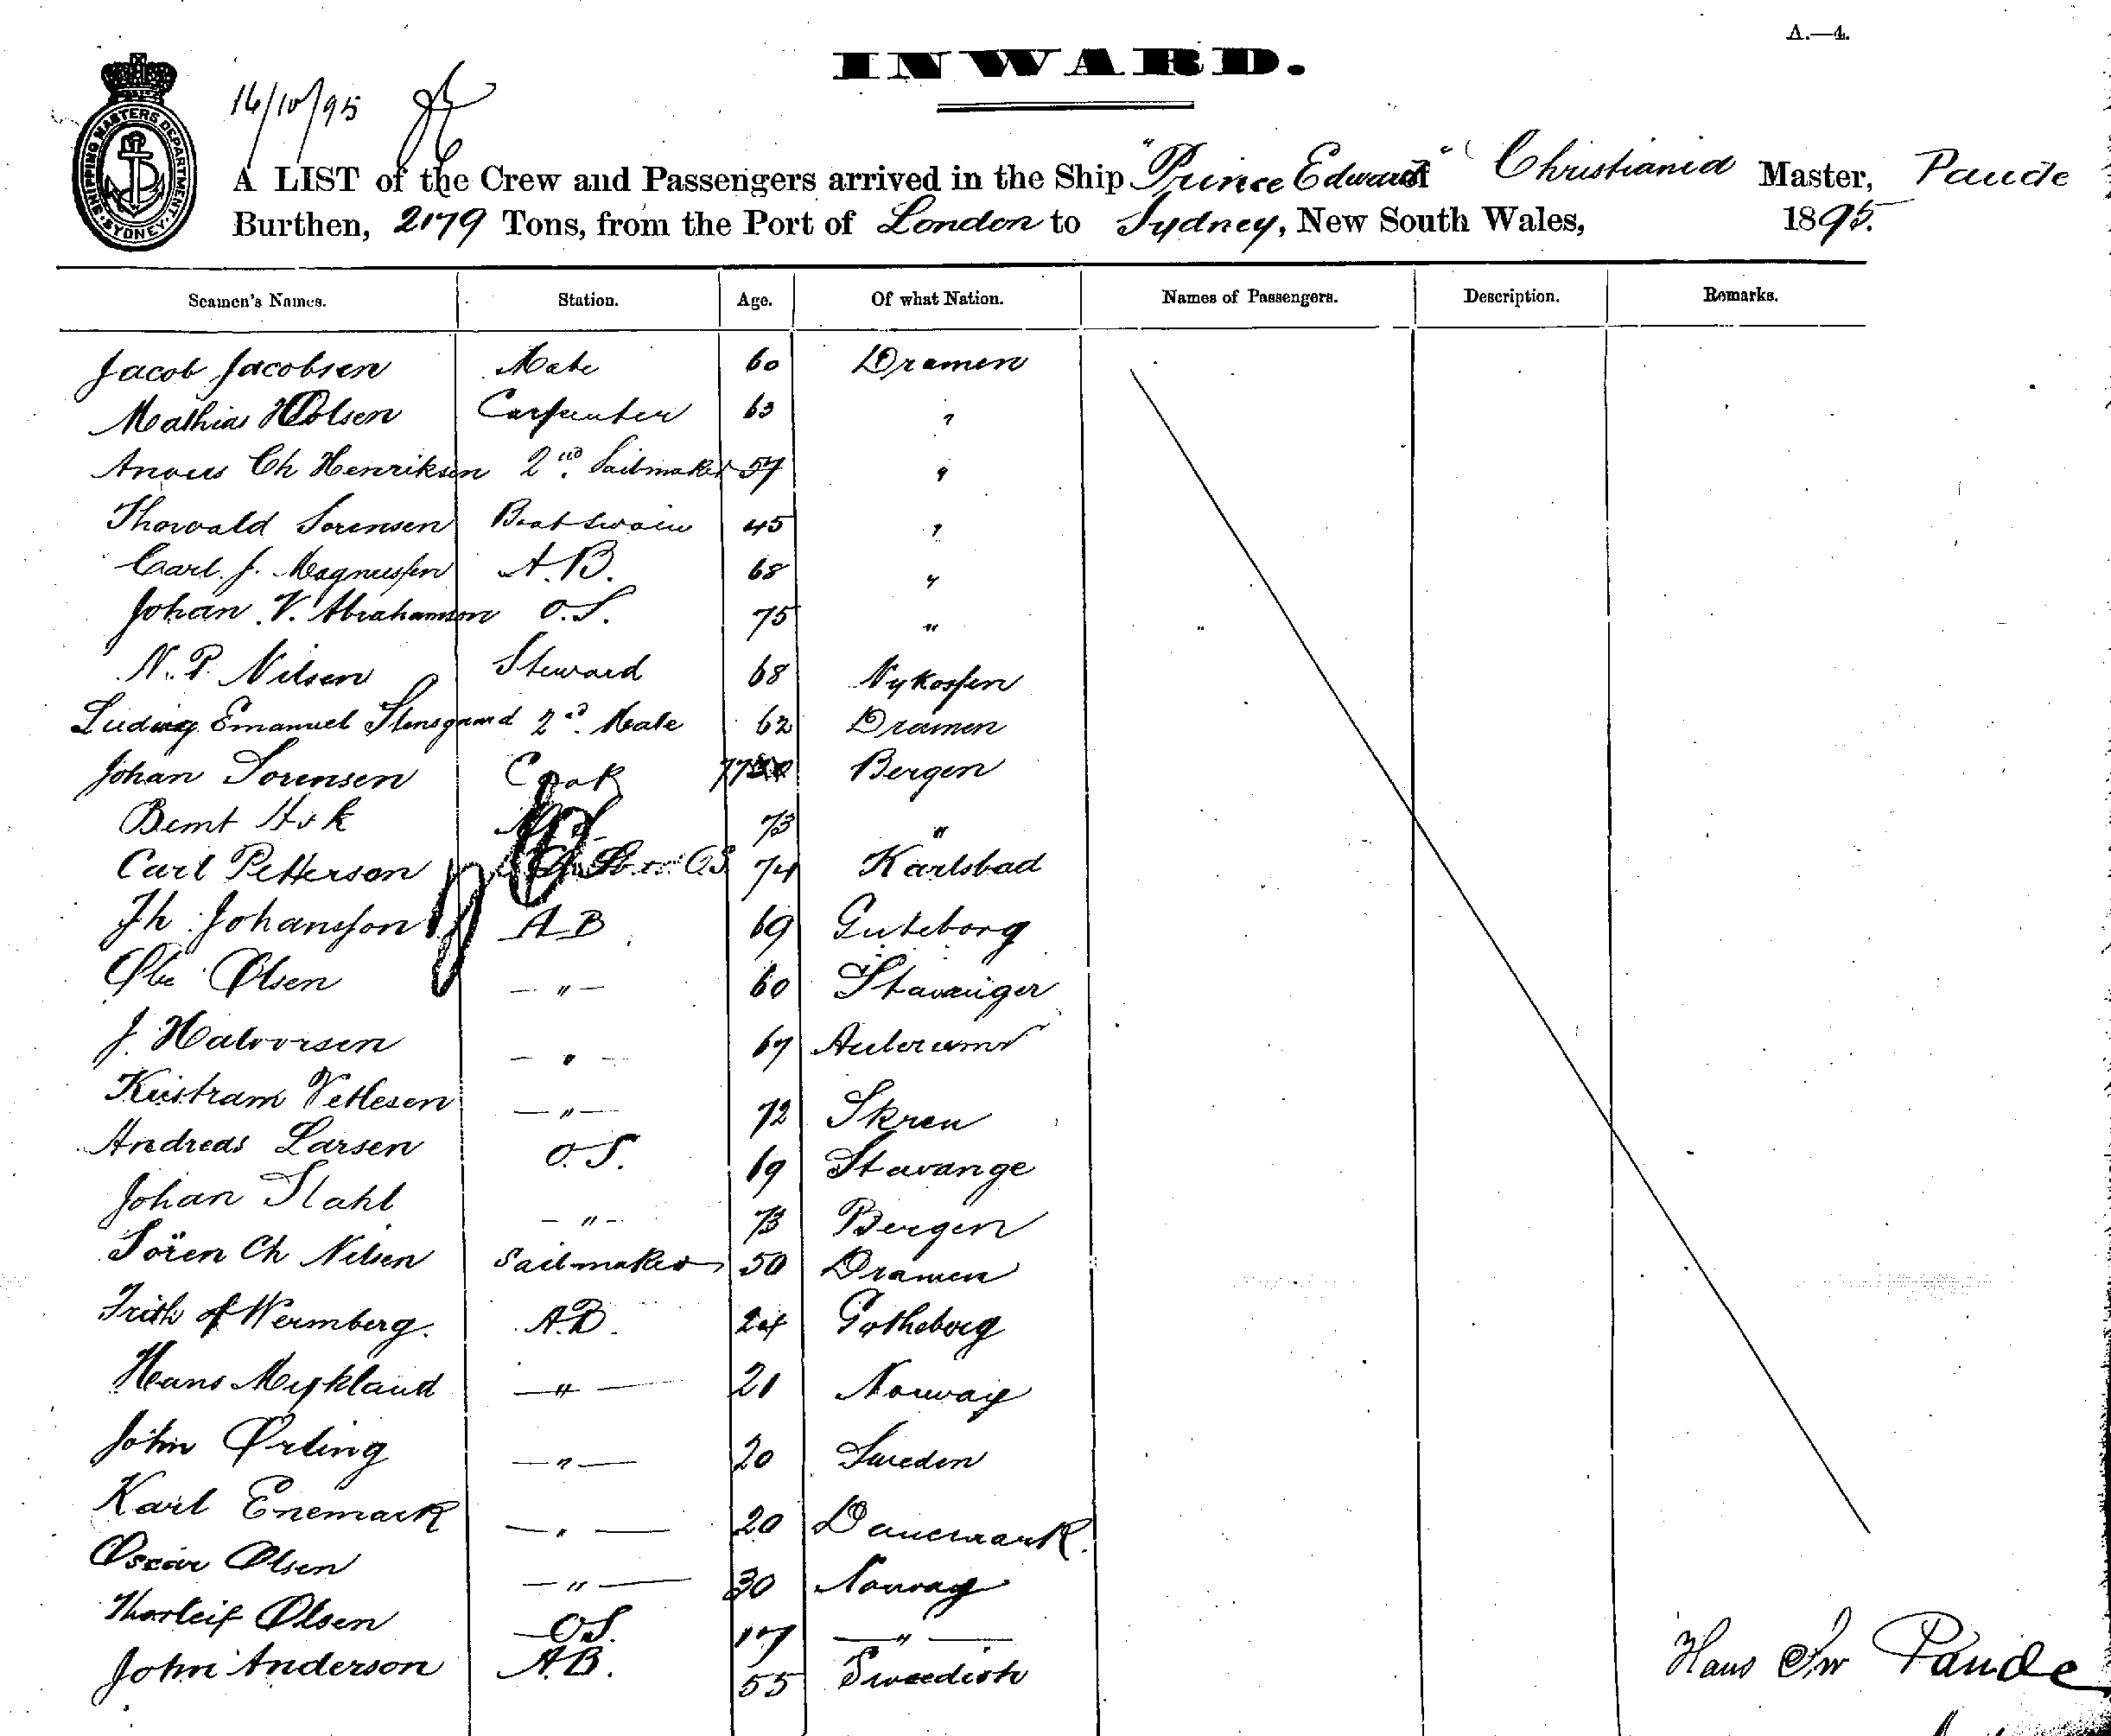 A.—4.
INWARD.
16/10/95
SHIPPING MASTERS DEPARTMENT. SYDNEY.
A LIST of the Crew and Passengers arrived in the Ship "Prince Edward" Christiania Master, Paude
Burthen, 2179 Tons, from the Port of London to Sydney, New South Wales, 1895.
Seamen's Names. Station. Age. Of what Nation. Names of Passengers. Description. Remarks.
Jacob Jacobsen Mate 60 Dramen
Mathias Olsen Carpenter 63 "
Ch Henriksen 2nd Sailmaker 57 "
Thorvald Sorensen Boatswain 45 "
Carl. J. Magnussen A.B. 68 "
Johan V. Abrahamson O.S. 75 "
N. P. Nilsen Steward 68 Nykossen
Ludwig Emanuel Stensgaard 2nd Mate 62 Dramen
Johan Sorensen Cook 77 Bergen
Bernt Ask 73 "
Carl Petterson O.S. 74 Karlsbad
Th Johansson AB 69 Guteborg
Ole Olsen — " — 60 Stavanger
J. Halvorsen — " — 67
Kristram Vetlesen — " — 72 Skren
Andreas Larsen O.S. 69 Stavange
Johan Stahl — " — 73 Bergen
Sören Ch Nilsen Sailmaker 50 Dramen
Frith of Wermberg. A.B. 24 Gotheborg
Hans Mykland — " — 21 Norway
John Ørling — " — 20 Sweden
Karl Enemark — " — 20 Danemark.
Oscar Olsen — " — 30 Norway
Thorleif Olsen O.S. 17 — " —
John Anderson A.B. 55 Sweedish
Hans Paude